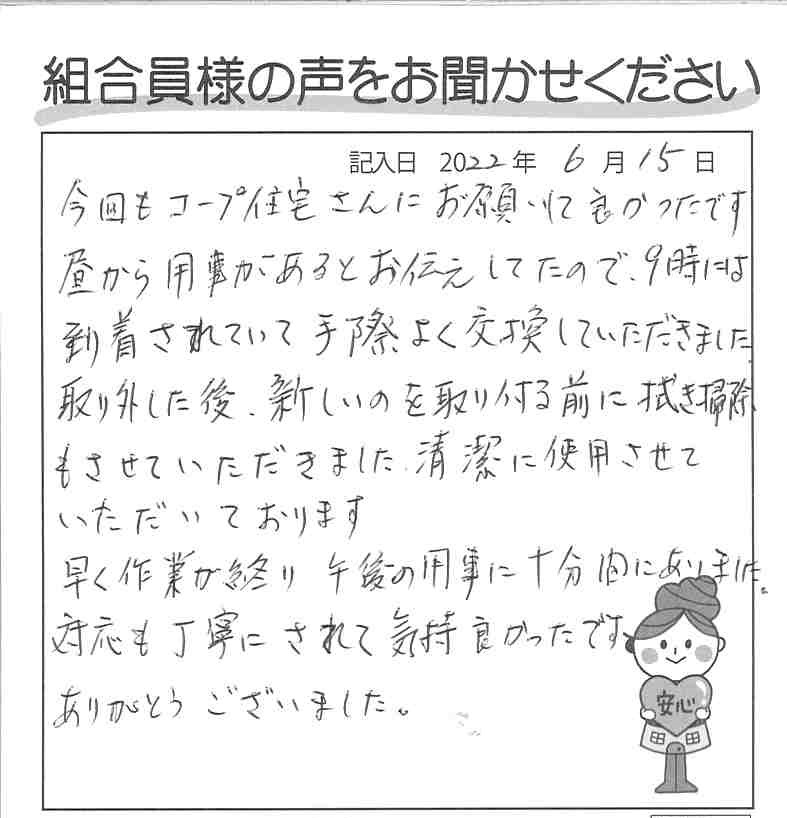 組合員様の声をお聞かせください
記入日 2022年 6月15日
今回もコープ住宅さんにお願いして良かったです
昼から用事があるとお伝えしてたので、9時には
到着されていて手際よく交換していただきました
取り外した後、新しいのを取り付る前に拭き掃除
もさせていただきました、清潔に使用させて
いただいております
早く作業が終り 午後の用事に十分間にありました。
対応も丁寧にされて気持良かったです、
ありがとうございました。
安心